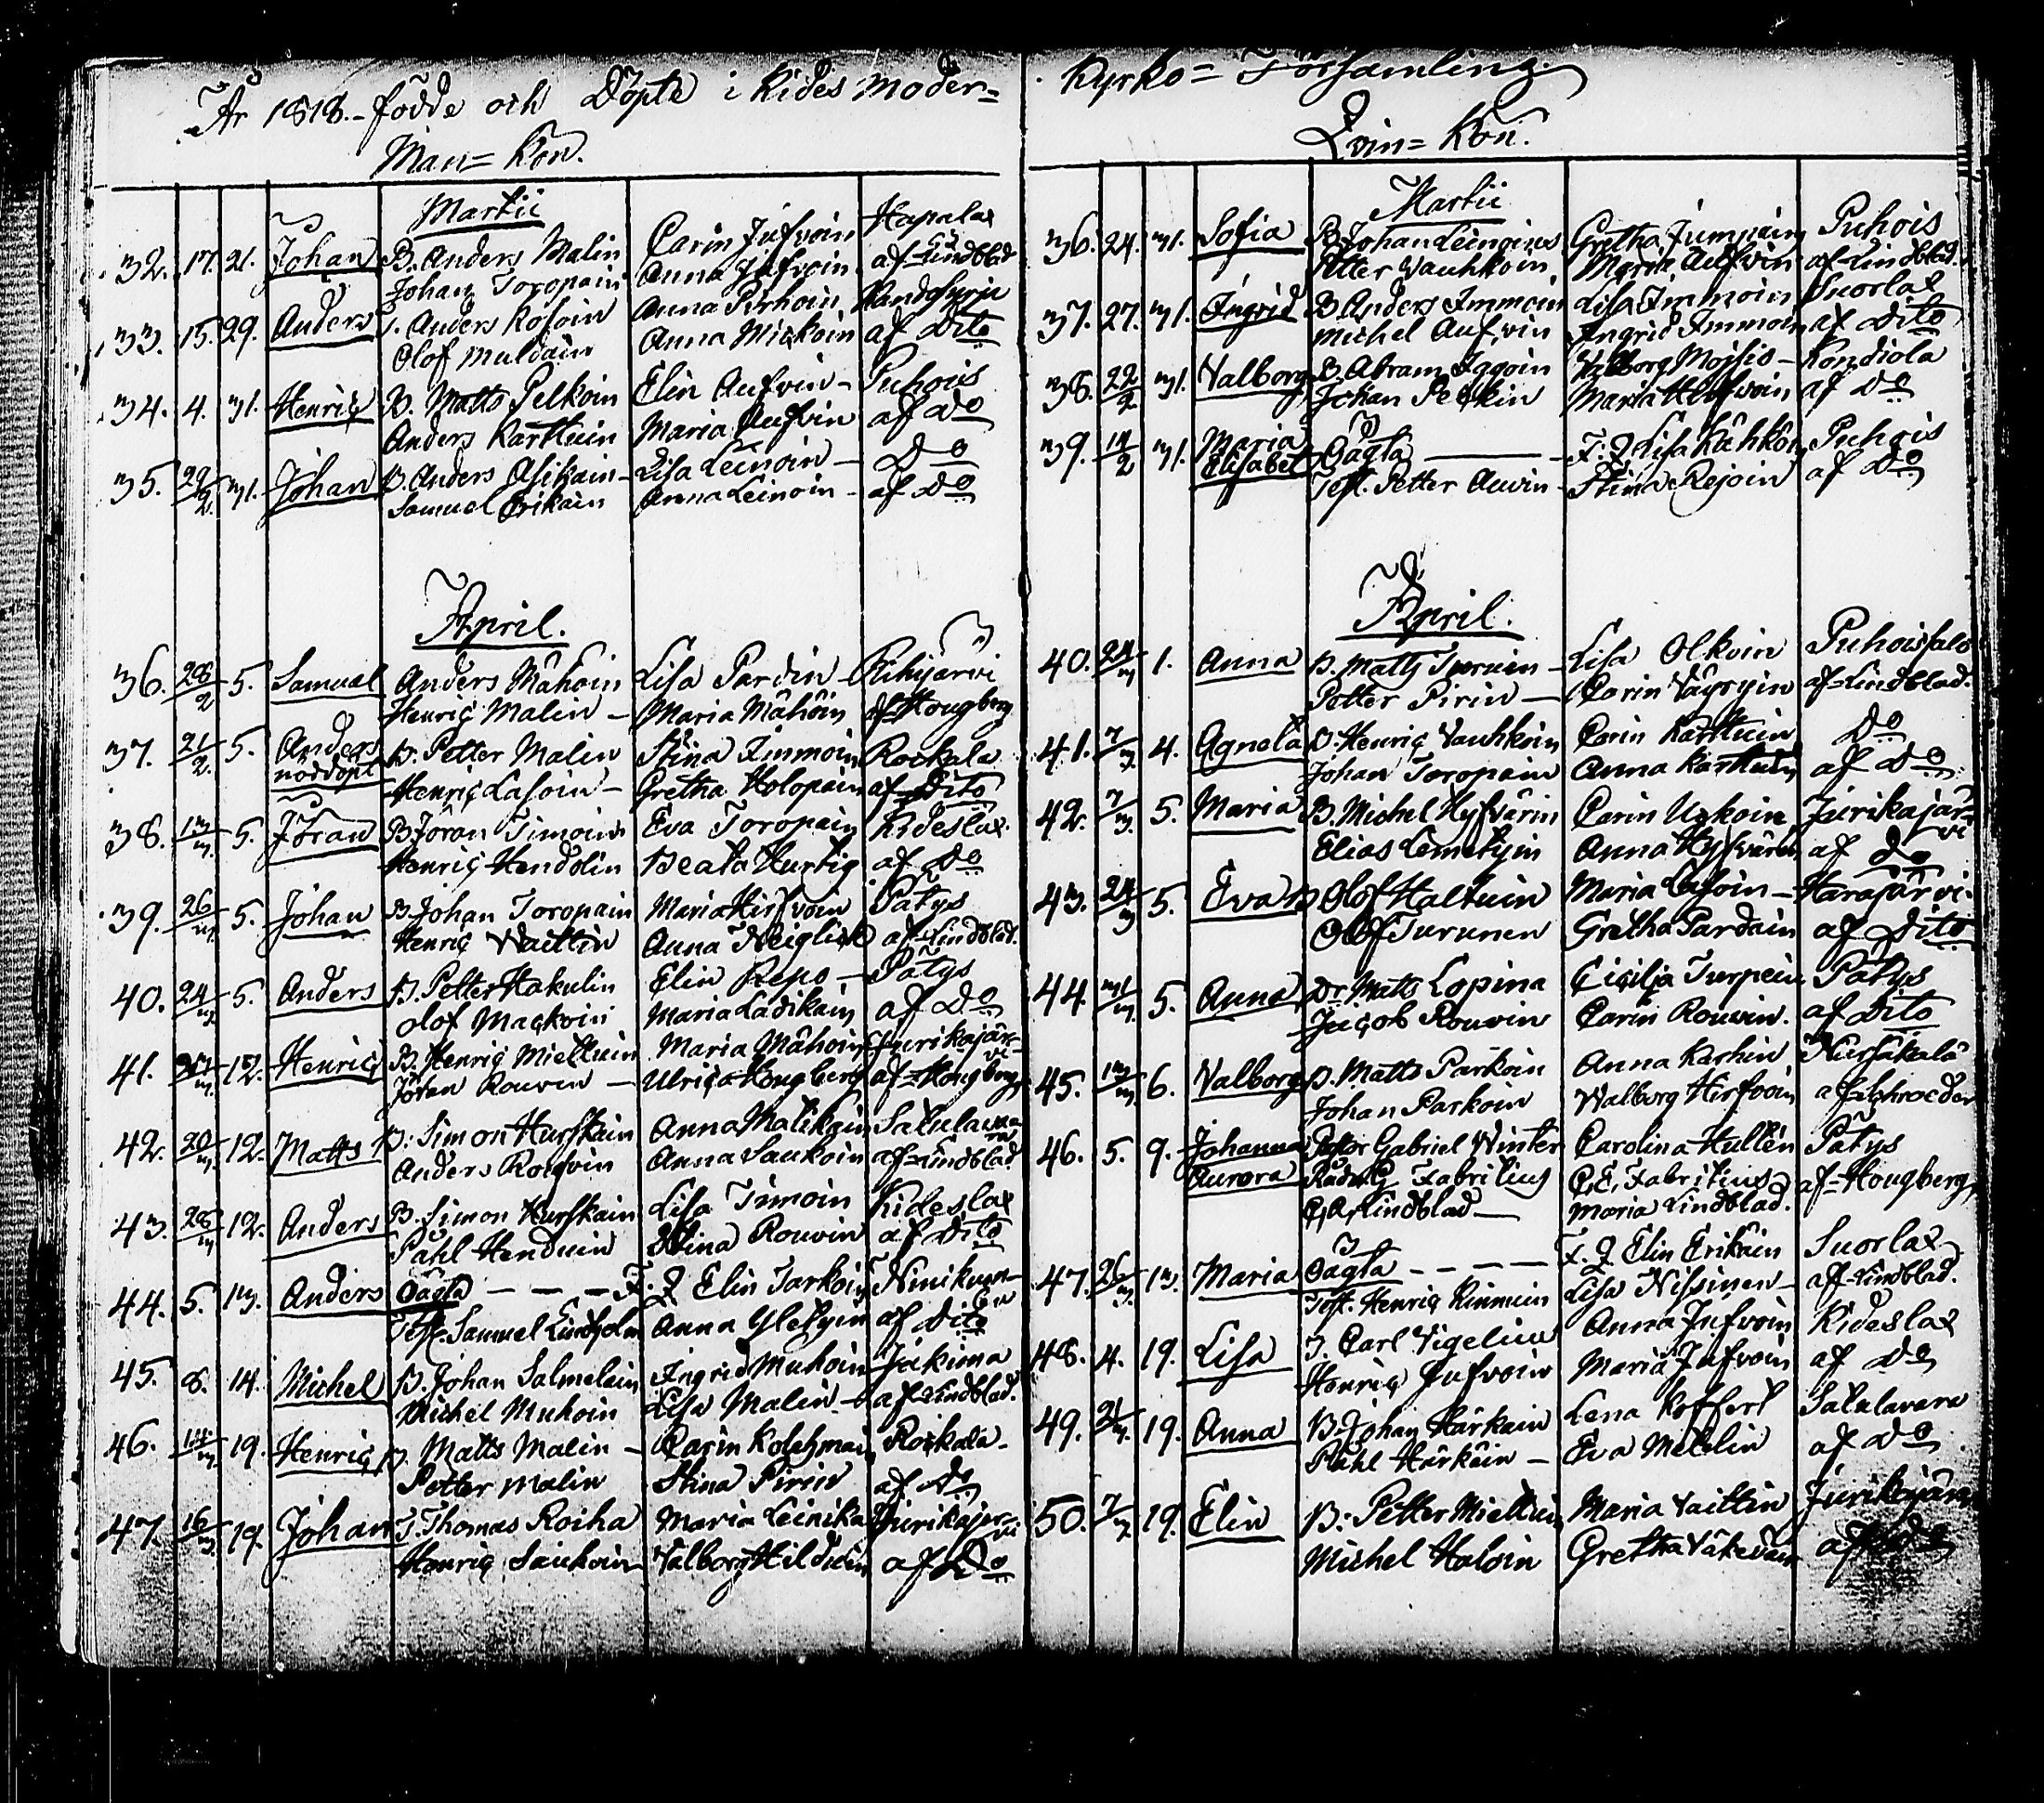 År 1818. födde och Döpte i Kides Moder=
Man=Kön.
Martii
32. 17. 21. Johan B. Anders Malin Carin Jufvoin Hapalax
Johan Toropain Anna Jufvoin af Lindblad
33. 15. 29. Anders I. Anders Kosoin Anna Pirhoin
Olof Muldain Anna Mickoin af Dito
34. 4. 31. Henric B. Matts Pelkoin Elin Aufvin - Puhois
Anders Karttuin Maria Aufvin af Do
35. 22/2 31. Johan B. Anders Asikain - Lisa Leinoin - Do
Samuel Erikain Anna Leinoin - af Do
April.
36. 28/2 5. Samuel Anders Mähöin Lisa Pardin - Kihijärvi
Henric Malin - Maria Mähöin af Hougberg
37. 21/2. 5. Anders B. Petter Malin Stina Immoin Rockala
nöddöpt Henric Lasoin - Gretha Holopain af Dito
38. 13/3. 5. Jöran B Jöran Timoin Eva Toropain Kideslax
Henric Hendolin Beata Hurtig af Do
39. 26/3. 5. Johan B. Johan Toropain Maria Hirfvoin Pätys
Henric Vaittin Anna Neiglick af Lindblad.
40. 24/3 5. Anders B. Petter Hakulin Elin Repo - Pätys
Olof Mackoin Maria Ladikain af Do
41. 12. Henric B. Henric Miettuin Maria Mähöin Juurikajär=
vi
Jöran Rouvin - Ulrica Hougberg af Hougberg
42. 20/3. 12. Matts B. Simon Hurskain Anna Matikain
Anders Anna Saukoin af Lindblad
43. 28/3 12. Anders B. Simon Hurskain Lisa Timoin Kideslax
Påhl Henduin Stina Rouvin af Dito
44. 5. 13. Anders Oägta - - - F. Q Elin Tarkoin
Test. Samuel Lindholm Anna af Dito
45. 8. 14. Michel B. Johan Salmelain Ingrid Muhoin Jakima
Michel Muhoin Lisa Malin - af Lindblad.
46. 14/3. 19. Henric B. Matts Malin - Carin Kolehmai Rockala -
Petter Malin Stina Pirin af Do
47. 16/3. 19. Johan I. Thomas Roiha Maria Leinika Jurikajer=
vi
Henric Saukoin Valborg Hilduin af Do
Kyrko=Församling.
Qvin=Kön.
Martii
36. 24. 31. Sofia B. Johan Leinoinen Gretha Jumpain Puhois
Petter Vauhkoin. Maria Aufvin af Lindblad.
37. 27. 31. Ingrid B. Anders Immoin Lisa Immoin Suorlax
Michel Aufvin Ingrid Immoin af Dito
38. 22/2 31. Valborg B. Abram Iggoin Valborg - Kondiola
Johan Peckin Maria Hirfvoin af Do
39. 14/2 31. Maria Elisabet Oägta - F. Q Lisa Kähkön Puhois
Test. Petter Auvin - Stina Rejoin af Do
April.
40. 24/3 1. Anna B. Matts Turuin - Lisa Olkoin Puhoissalo
Petter Pirin - Carin Väyryin af Lindblad.
41. 7/3 4. Agneta B. Henric Vauhkoin Carin Karttuin Do
Johan Toropain Anna Karttuin af Do
42. 7/3. 5. Maria B. Michel Hyfvärin Carin Uskoin Jurikajär=
vi
Elias Lemetyin Anna Hyfvärin af Do
43. 24/3 5. Eva B Olof Haltuin Maria Lasoin - Harajärvi.
Olof Turunen Gretha Pardain af Dito
44. 5. Anna Dr. Matts Lopina Cicilja Turpein Pätys
Jacob Rouvin Carin Rouvin. af Dito
45. 13/3. 6. Valborg B. Matts Parkoin Anna Karhin
Johan Parkoin Walborg Hirfvoin af Schroeder
46. 5. 9. Johanna Aurora Gabriel Winter Carolina Hullèn Pätys
Fabritius C. E. Fabritius af Hougberg
C. A. Lindblad - Maria Lindblad.
47. 26/3. 13. Maria Oägta - - - - F. Q Elin Erikäin Suorlax
Test. Henric Kinnuin Lisa Nissinen - af Lindblad.
48. 4. 19. Lisa I. Carl Vigelius Anna Jufvoin Kideslax
Henric Jufvoin Maria Jufvoin af Do
49. 21/3. 19. Anna B. Johan Härkäin Lena Koffert Salulavara
Påhl Härkäin - Eva Mellin af Do
50. 7/3 19. Elin B. Petter Miettuin Maria Vaittin
Michel Haloin Gretha